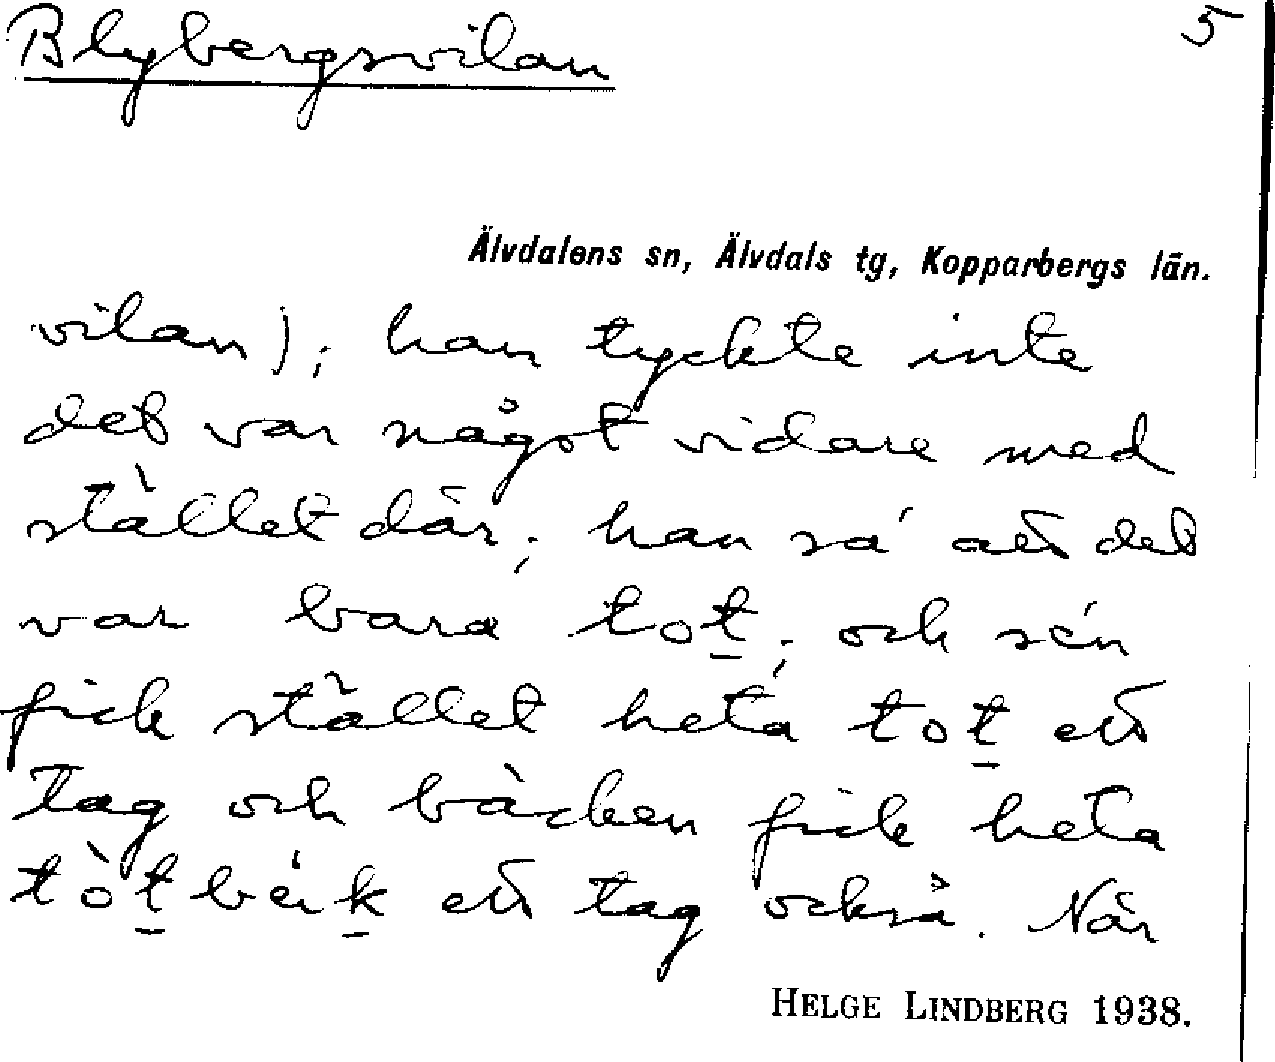 Blybergsvilan
5
Älvdalens sn, Älvdals tg, Kopparbergs län.
vilan); han tyckte inte
det var något vidare med
stället där; han sa' att det
var bara tot; och sén
fick stället heta tot ett
tag och bäcken fick heta
tòtbéik ett tag också. När
HELGE LINDBERG 1938.